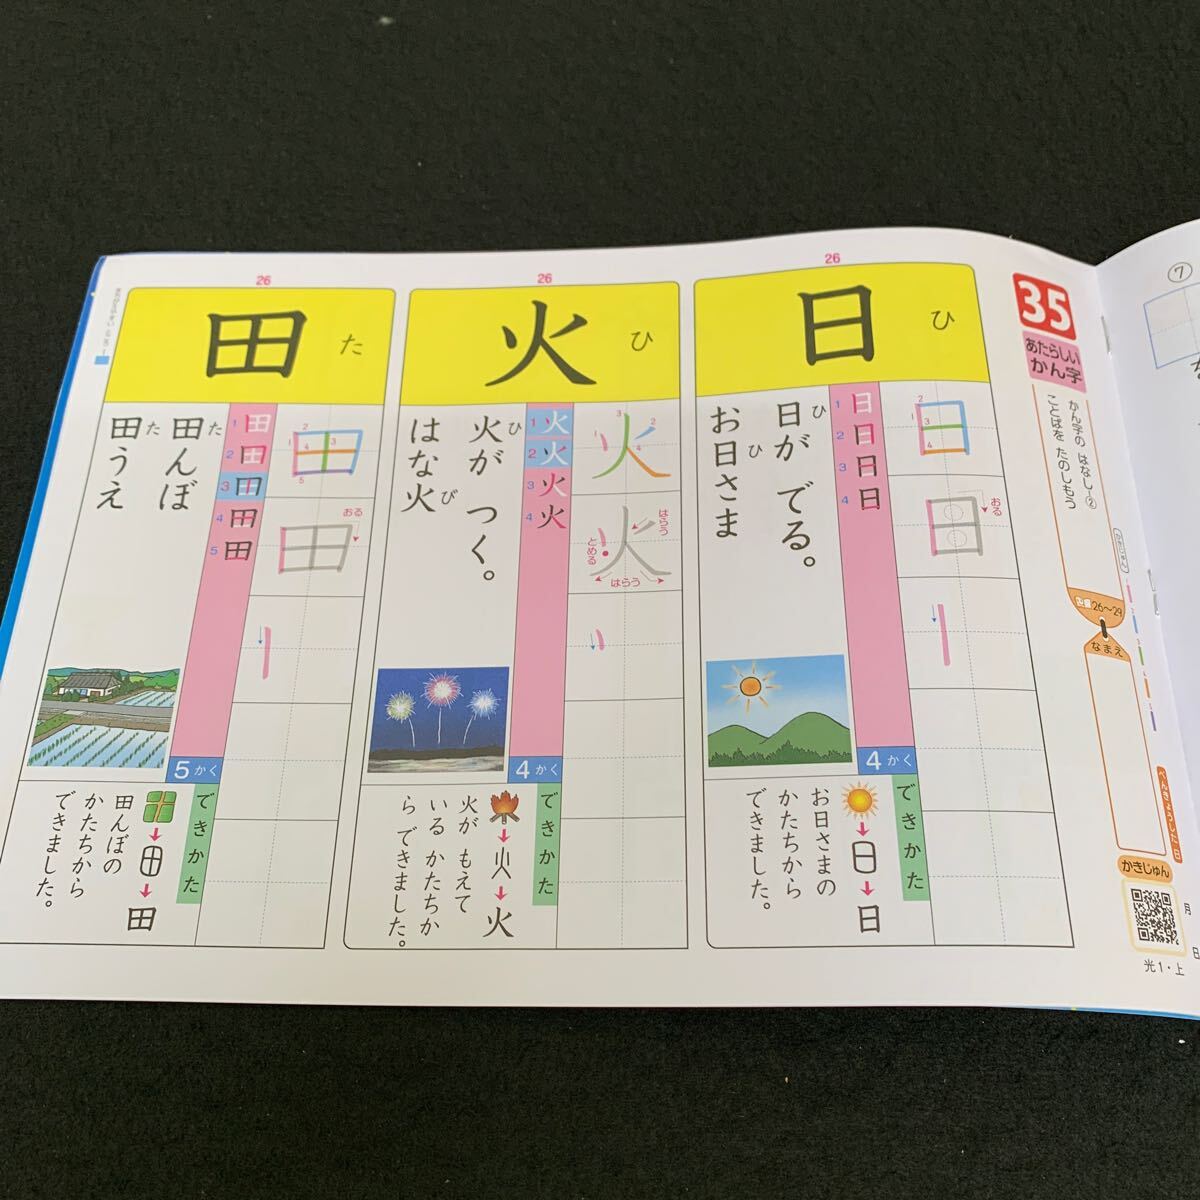 35
あたらしい
かん字
かん字の はなし②
ことばを たのしもう
26〜29
なまえ
べんきょうした日
かきじゅん
光1・上
26
日
ひ
日が でる。
ひ
お日さま
ひ
1
日
2
日
3
日
4
日
4かく
日
日
おる
できかた
日
日
お日さまの
かたちから
できました。
26
火
ひ
火が つく。
ひ
はな火
び
1
火
2
火
3
火
4
火
4かく
火
火
はらう
とめる
はらう
できかた
火
火が もえて
いる かたちか
ら できました。
26
田
た
田んぼ
た
田うえ
た
1
田
2
田
3
田
4
田
5
田
5かく
田
田
おる
できかた
田
田
田んぼの
かたちから
できました。
⑦
月
日